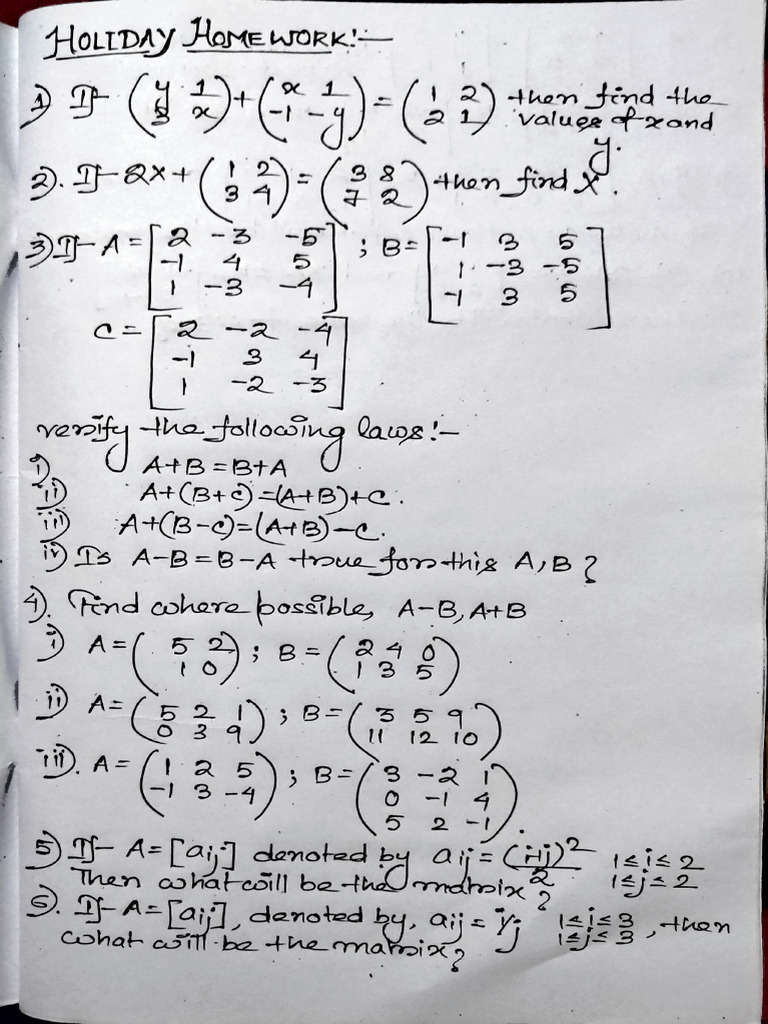 HOLIDAY HOMEWORK!—
1) If (y 1 / 3 x) + (x 1 / -1 -y) = (1 2 / 2 1) then find the values of x and y.
2). If 2X + (1 2 / 3 4) = (3 8 / 7 2) then find X.
3) If A = [2 -3 -5 / -1 4 5 / 1 -3 -4] ; B = [-1 3 5 / 1 -3 -5 / -1 3 5]
C = [2 -2 -4 / -1 3 4 / 1 -2 -3]
verify the following laws!—
i) A+B = B+A
ii) A+(B+C) = (A+B)+C.
iii) A+(B-C) = (A+B)-C.
iv) Is A-B = B-A true for this A, B?
4). Find where possible, A-B, A+B
i) A = (5 2 / 1 0) ; B = (2 4 0 / 1 3 5)
ii) A = (5 2 1 / 0 3 9) ; B = (3 5 9 / 11 12 10)
iii). A = (1 2 5 / -1 3 -4) ; B = (3 -2 1 / 0 -1 4 / 5 2 -1).
5) If A = [aij] denoted by aij = (i+j)²/2 1≤i≤2 1≤j≤2
Then what will be the matrix?
6). If A = [aij], denoted by, aij = i/j 1≤i≤3 1≤j≤3, then
what will be the matrix?